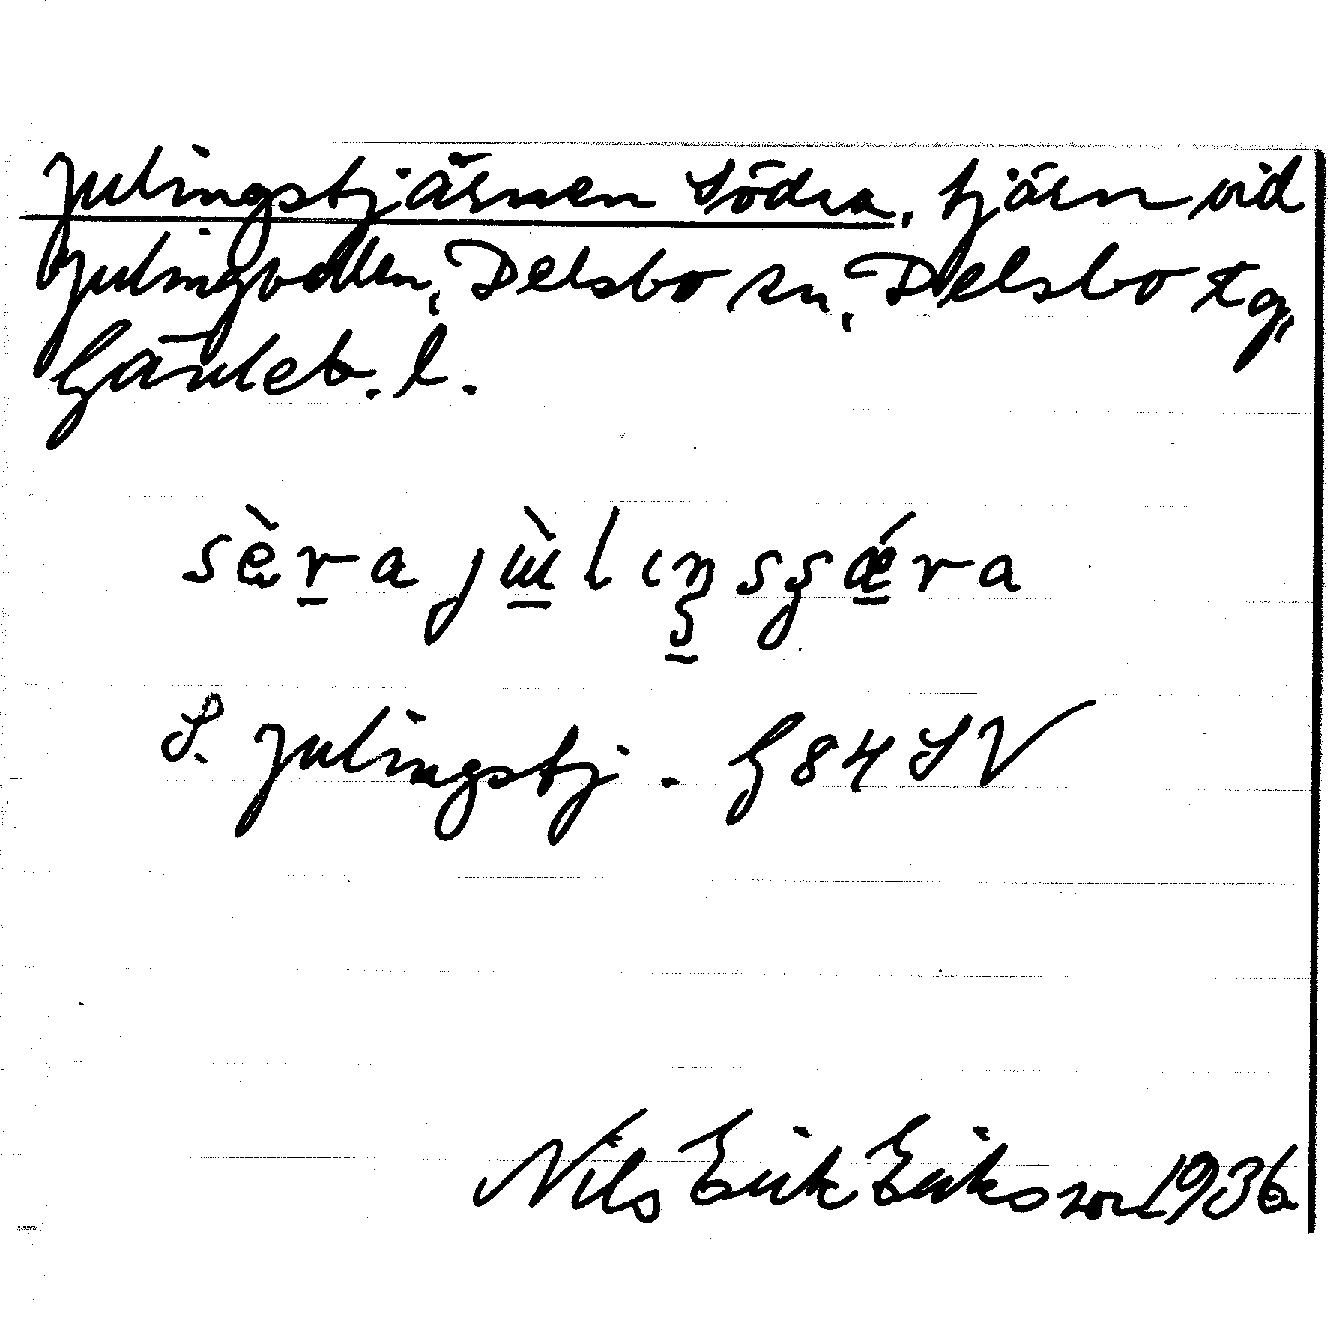 Julingstjärnen Södra, tjärn vid
Julingvallen, Delsbo sn, Delsbo tg,
Gävleb. l.
S. Julingstj. G 84 SV
Nils Erik Eriksson 1936